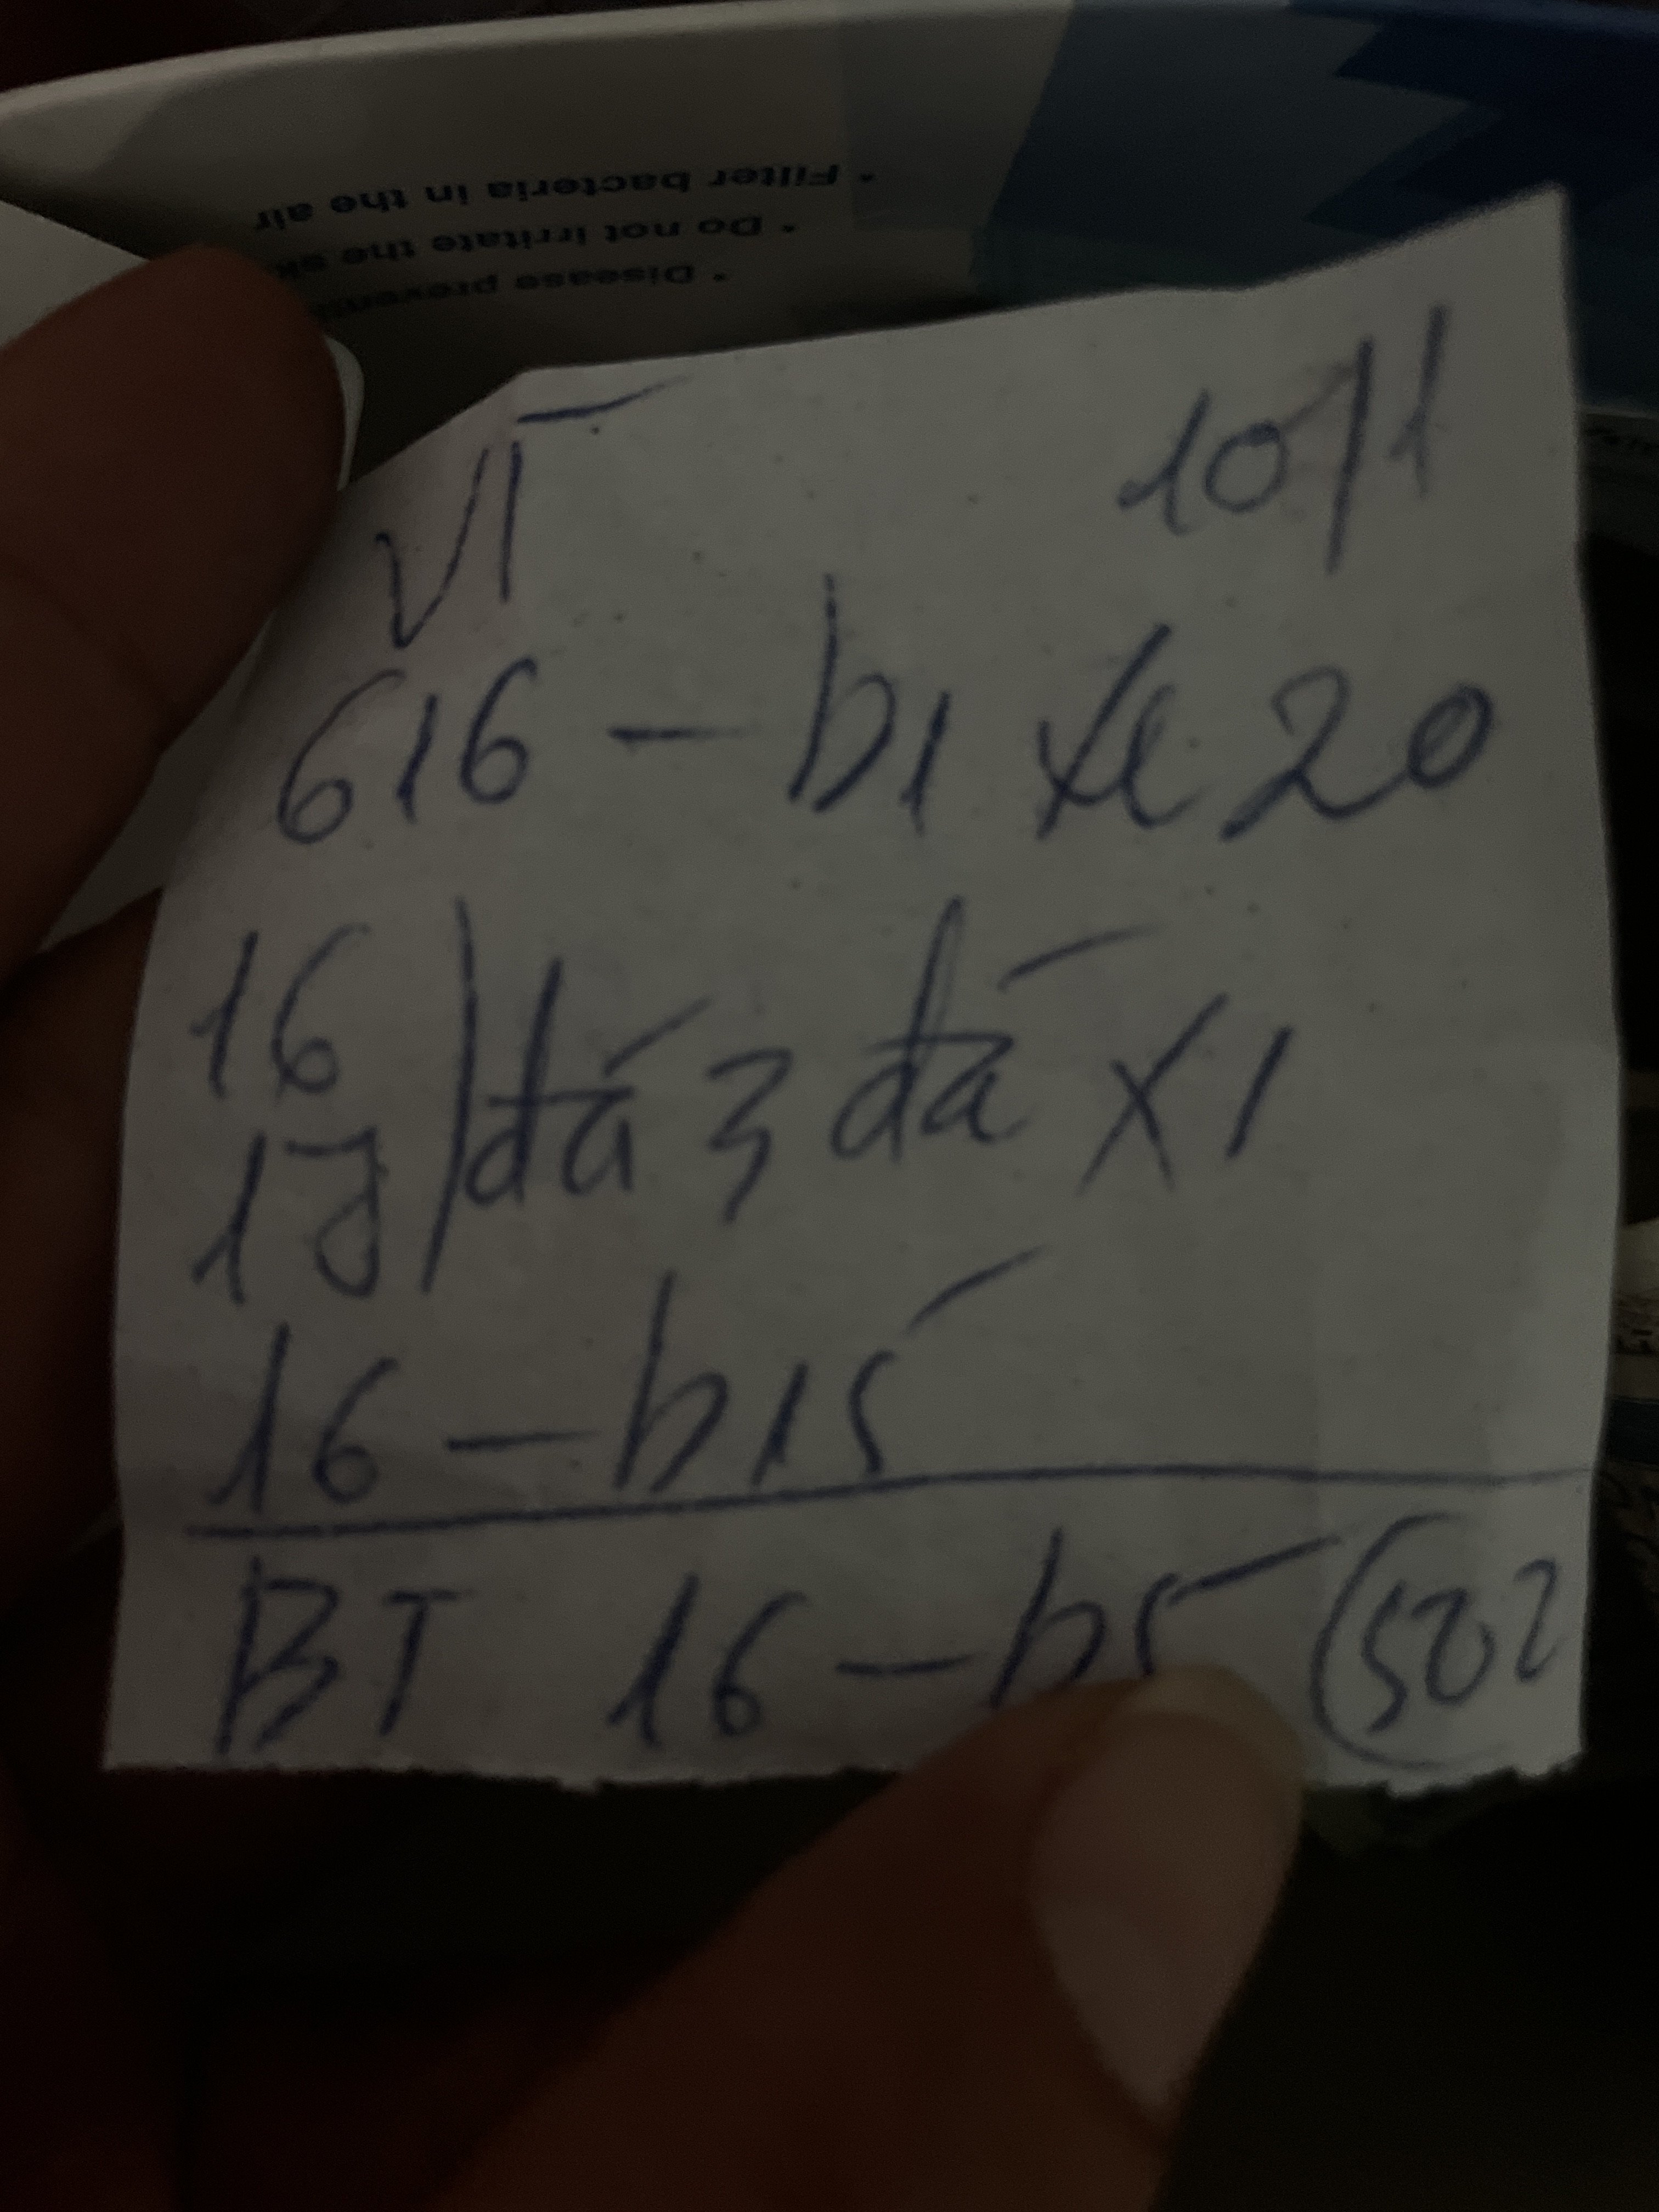 Filter bacteria in the air
Do not irritate the
Disease
VT 10/1
616 - b1 xc 20
16
17 đá 3 đá x1
16 - b15
BT 16 - b5 502